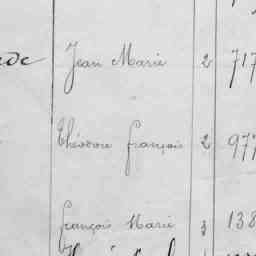 Jean Marie 2 717
Théodore François 2 977
François Marie 3 138